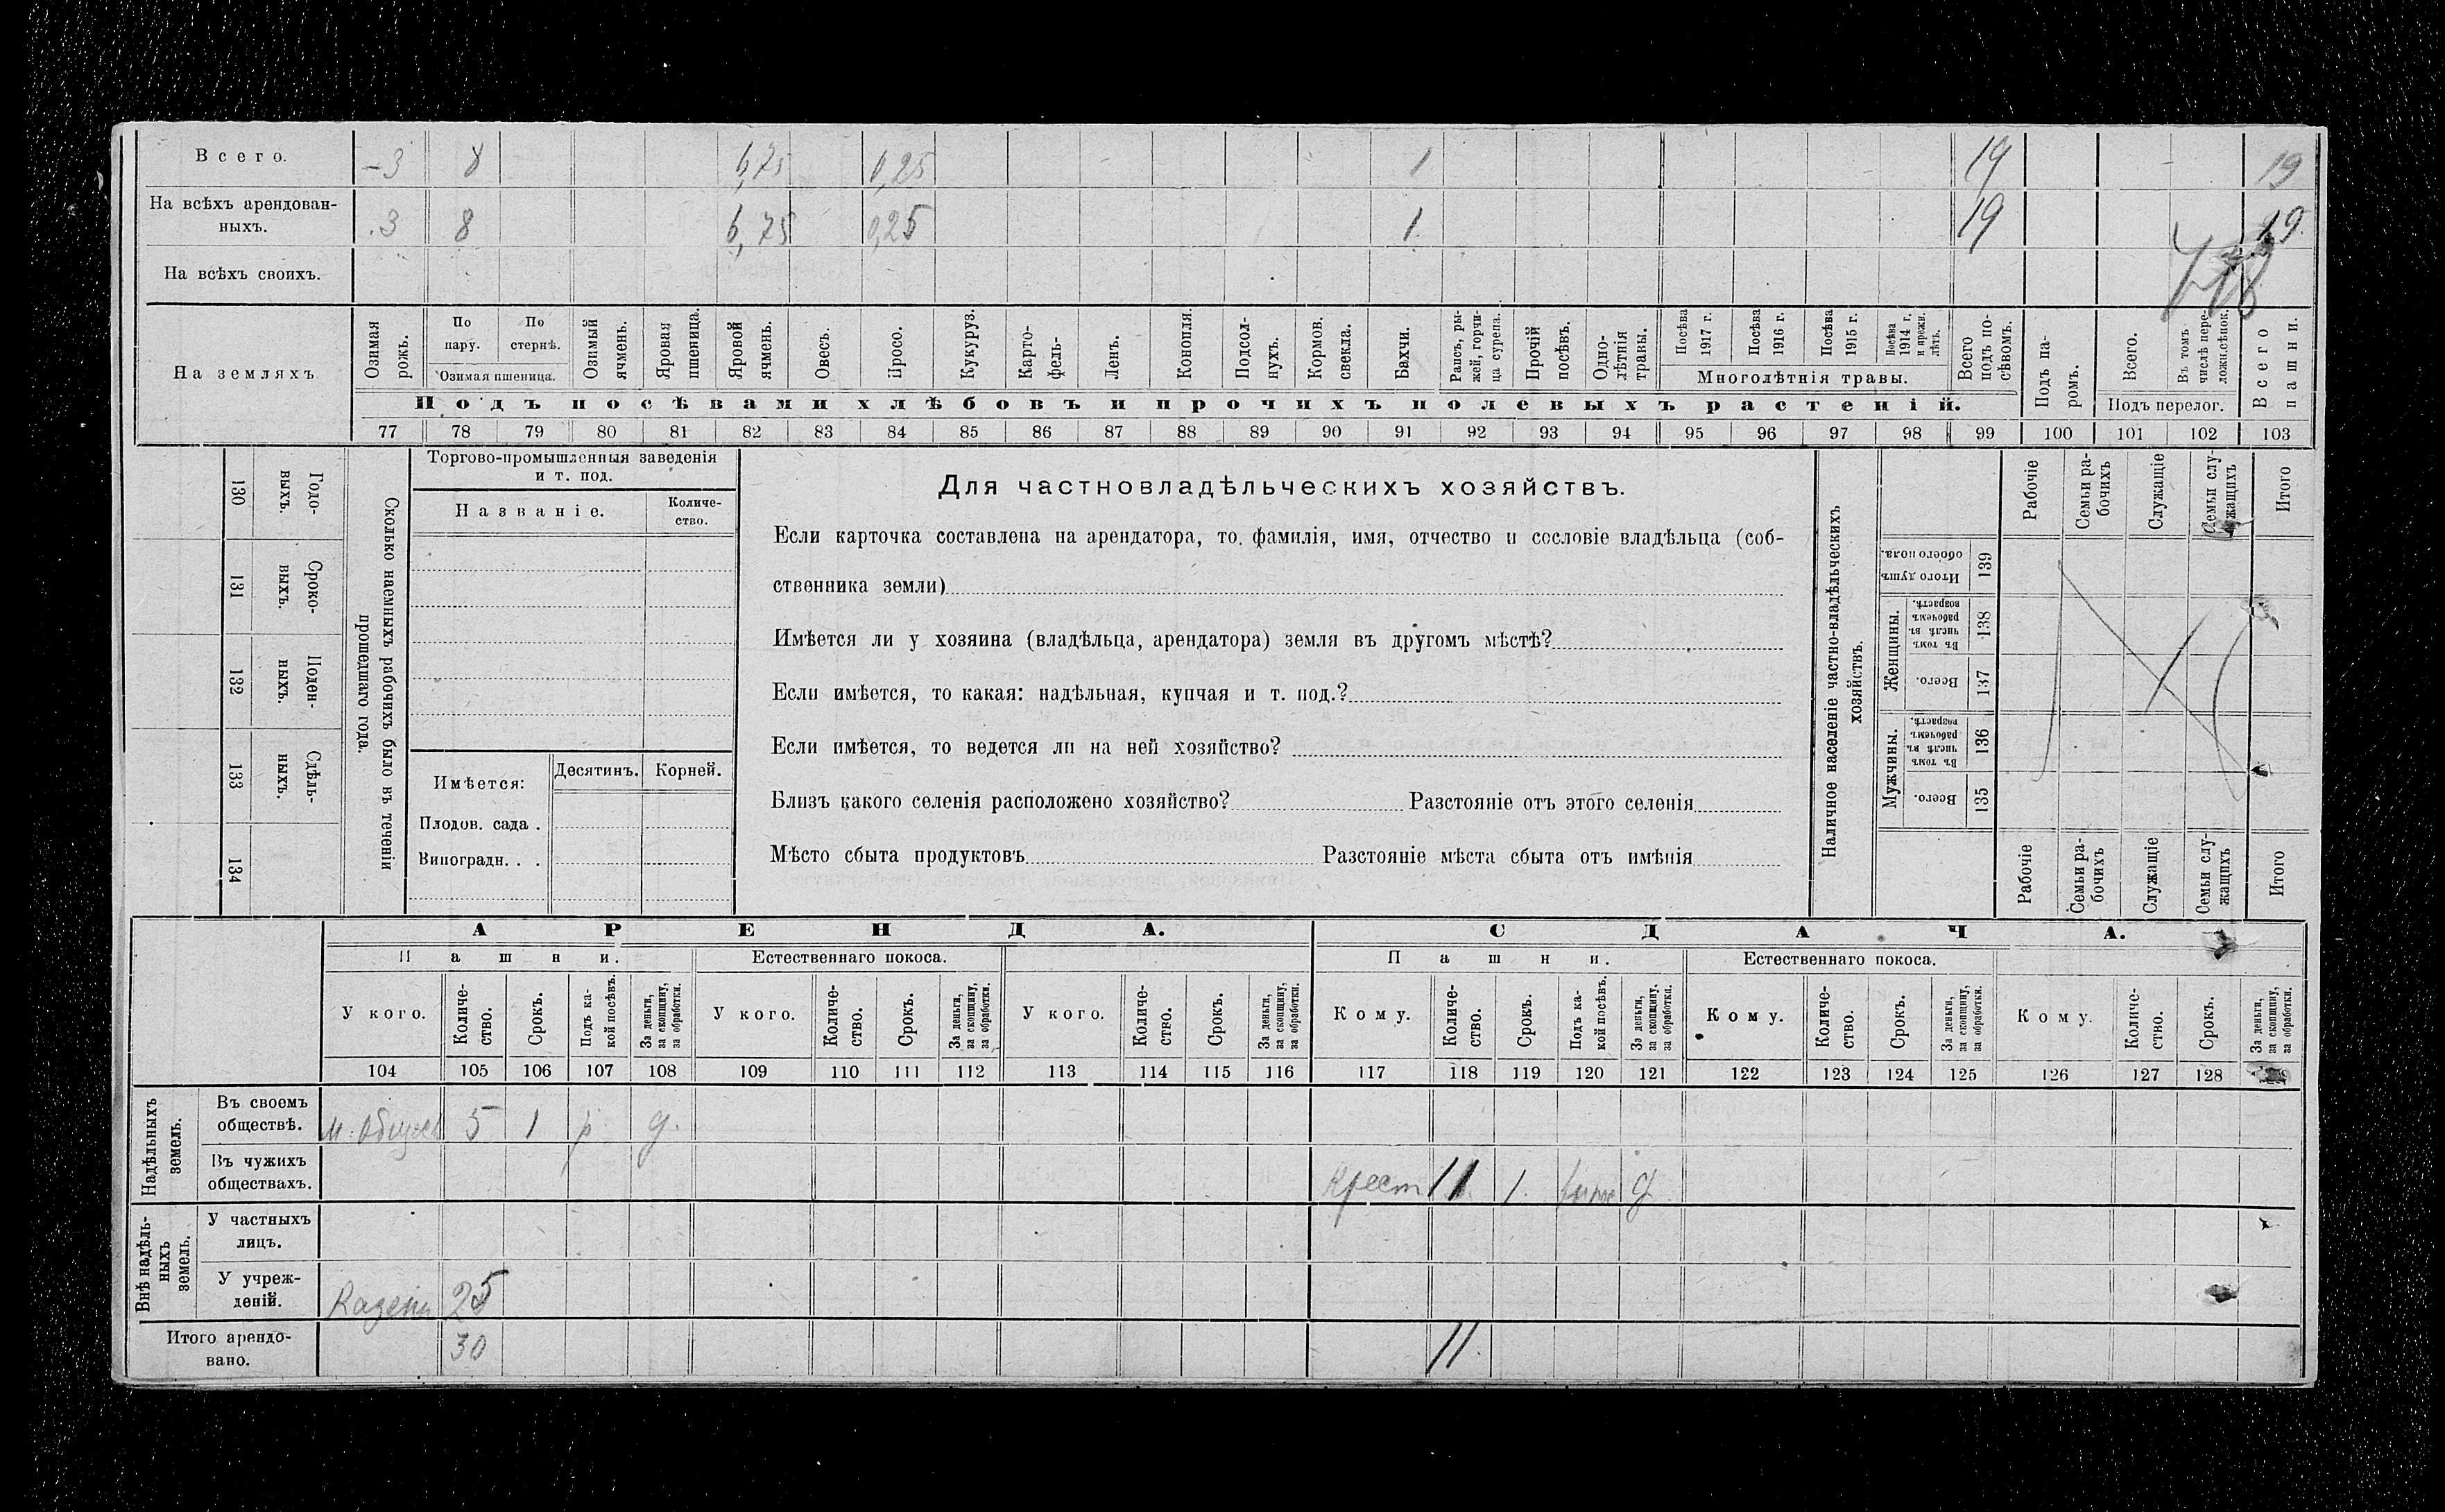 Всего. -3 8 6,75 0,25 1 19 19
На всѣхъ арендован-
ныхъ. .3 8 6,75 0,25 1. 19 19.
На всѣхъ своихъ.
На земляхъ
Озимая рожь.
По пару.
По стернѣ.
Озимая пшеница.
Озимый ячмень.
Яровая пшеница.
Яровой ячмень.
Овесъ.
Просо.
Кукуруз.
Карто-
фель-
Ленъ.
Конопля.
Подсол-
нухъ.
Кормов.
свекла.
Бахчи.
Рапсъ, ры-
жей, горчи-
ца сурепа.
Прочій
посѣвъ.
Одно-
лѣтнія
травы.
Посѣва
1917 г.
Посѣва
1916 г.
Посѣва
1915 г.
Посѣва
1914 г.
и прежн.
лѣтъ.
Многолѣтнія травы.
Всего
подъ по-
сѣвомъ.
Подъ па-
ромъ.
Всего.
Въ томъ
числѣ пере-
ложн.сѣнок.
Подъ перелог.
Всего
пашни.
Подъ посѣвами хлѣбовъ и прочихъ полевыхъ растеній.
77 78 79 80 81 82 83 84 85 86 87 88 89 90 91 92 93 94 95 96 97 98 99 100 101 102 103
130 Годо-
выхъ.
131 Сроко-
выхъ.
132 Поден-
ныхъ.
133 Сдѣль-
ныхъ.
134
Сколько наемныхъ рабочихъ было въ теченіи
прошедшаго года.
Торгово-промышленныя заведенія
и т. под.
Названіе.
Количе-
ство.
Имѣется:
Десятинъ. Корней.
Плодов. сада .
Виноградн. . .
Для частновладѣльческихъ хозяйствъ.
Если карточка составлена на арендатора, то фамилія, имя, отчество и сословіе владѣльца (соб-
ственника земли)
Имѣется ли у хозяина (владѣльца, арендатора) земля въ другомъ мѣстѣ?
Если имѣется, то какая: надѣльная, купчая и т. под.?
Если имѣется, то ведется ли на ней хозяйство?
Близъ какого селенія расположено хозяйство? Разстояніе отъ этого селенія
Мѣсто сбыта продуктовъ Разстояніе мѣста сбыта отъ имѣнія
Наличное населеніе частно-владѣльческихъ
хозяйствъ.
Рабочіе
Семьи ра-
бочихъ
Служащіе
Семьи слу-
жащихъ
Итого
Итого душъ
обоего пола.
139
Женщины.
Въ томъ
числѣ въ
рабочемъ
возрастѣ.
138
Всего.
137
Мужчины.
Въ томъ
числѣ въ
рабочемъ
возрастѣ.
136
Всего.
135
Рабочіе
Семьи ра-
бочихъ
Служащіе
Семьи слу-
жащихъ
Итого
АРЕНДА. СДАЧА.
Пашни. Естественнаго покоса. Пашни. Естественнаго покоса.
У кого.
Количе-
ство.
Срокъ.
Подъ ка-
кой посѣвъ.
За деньги,
за скопщину,
за обработки.
У кого.
Количе-
ство.
Срокъ.
За деньги,
за скопщину,
за обработки.
У кого.
Количе-
ство.
Срокъ.
За деньги,
за скопщину,
за обработки.
Кому.
Количе-
ство.
Срокъ.
Подъ ка-
кой посѣвъ.
За деньги,
за скопщину,
за обработки.
Кому.
Количе-
ство.
Срокъ.
За деньги,
за скопщину,
за обработки.
Кому.
Количе-
ство.
Срокъ.
За деньги,
за скопщину,
за обработки.
104 105 106 107 108 109 110 111 112 113 114 115 116 117 118 119 120 121 122 123 124 125 126 127 128
Надѣльныхъ
земель.
Въ своемъ
обществѣ. 5 1 р д.
Въ чужихъ
обществахъ. Крест 11 1. д
Внѣ надѣль-
ныхъ
земель.
У частныхъ
лицъ.
У учреж-
деній. Казени 25
Итого арендо-
вано. 30 11.